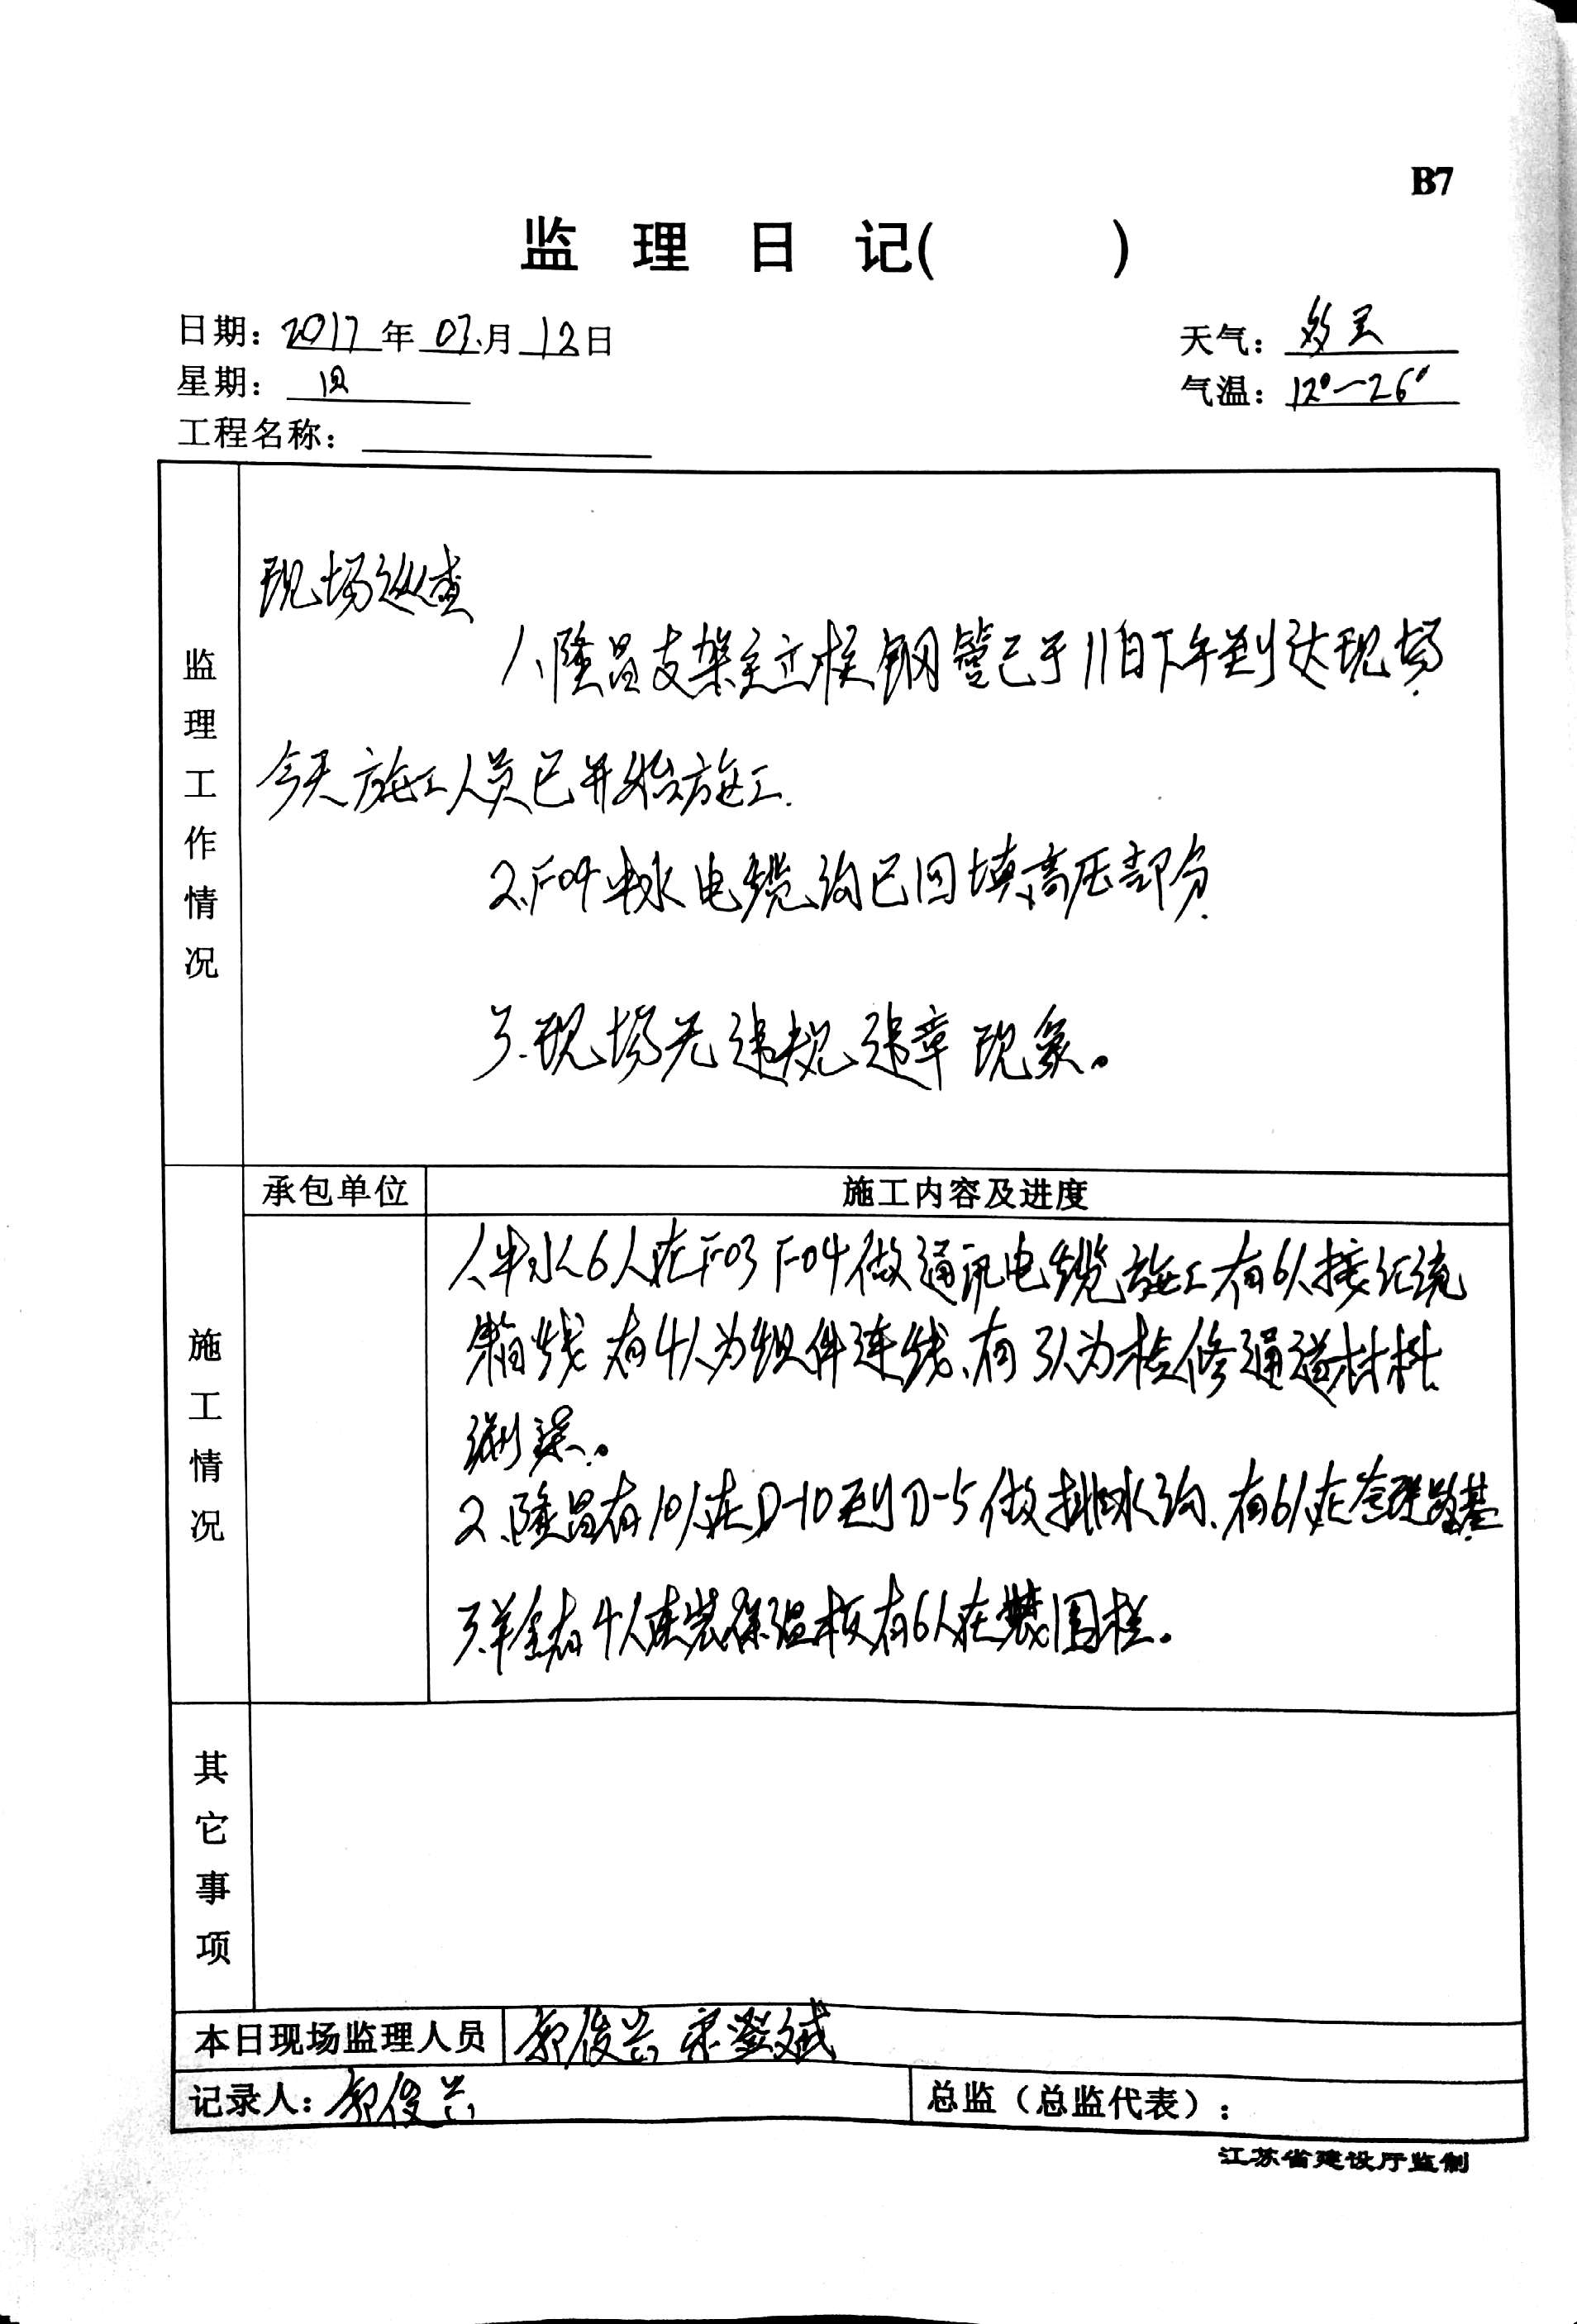 B7
监 理 日 记( )
日期: 2017 年 07 月 12 日
天气: 多云
星期:
气温: 12°-26°
工程名称:
监理工作情况
现场巡查
1、隆昌支架主立柱钢管已于11日下午到达现场.
今天施工人员已开始施工.
2.F04 水电缆沟已回填高压部分.
3.现场无违规违章现象。
承包单位 施工内容及进度
施工情况
水6人在F03 F04做通讯电缆施工有6人接汇流
箱线 有4人为组件连线、有3人为检修通道材料
2.隆昌有10人在D-10到D-5做排水沟、有6人在 路基
有4人在装保温板有6人在装围栏。
其它事项
本日现场监理人员 郭俊兰 宋 斌
记录人: 郭俊兰
总监（总监代表）:
江苏省建设厅监制